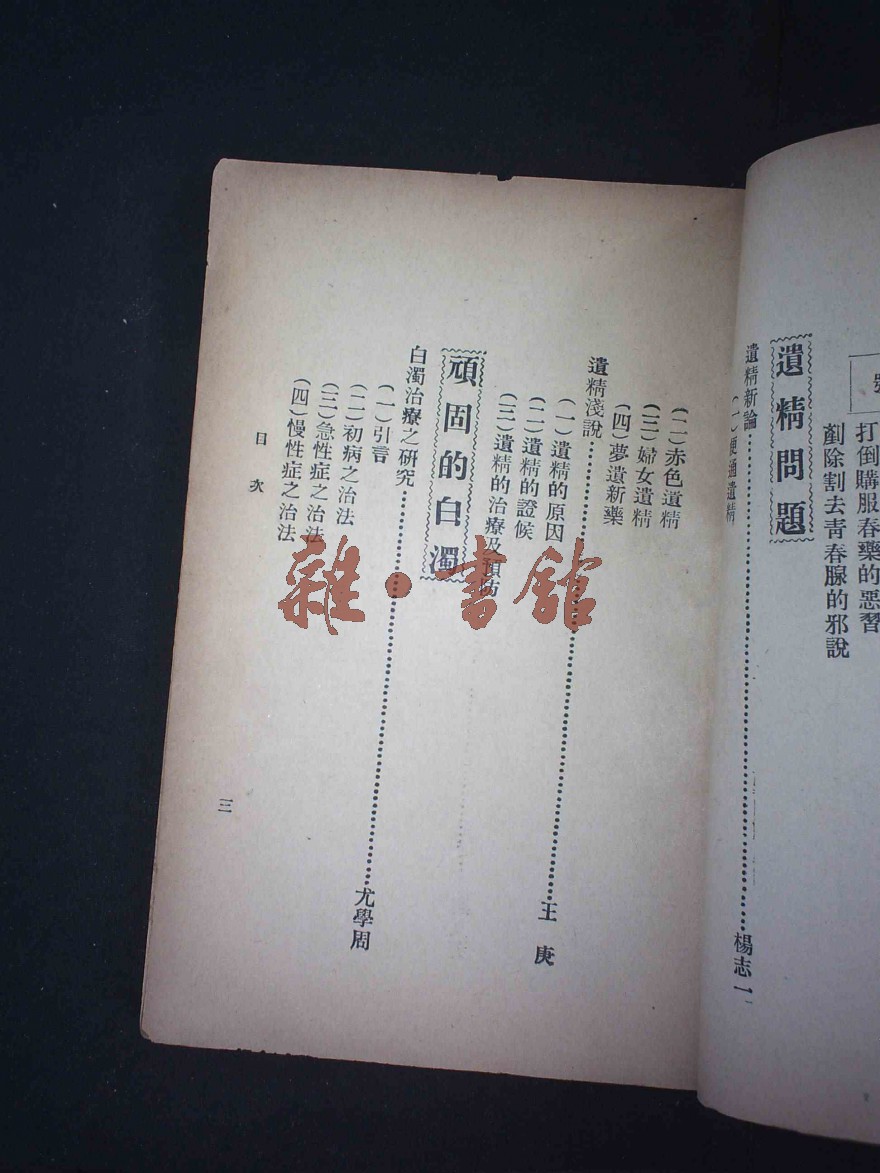 打倒購服春藥的惡習
剷除割去青春腺的邪說
遺精問題
遺精新論
楊志一
(一)便通遺精
(二)赤色遺精
(三)婦女遺精
(四)夢遺新藥
遺精淺說
王庚
(一)遺精的原因
(二)遺精的證候
(三)遺精的治療及預防
頑固的白濁
白濁治療之研究
尤學周
(一)引言
(二)初病之治法
(三)急性症之治法
(四)慢性症之治法
目次
三
雜·書館